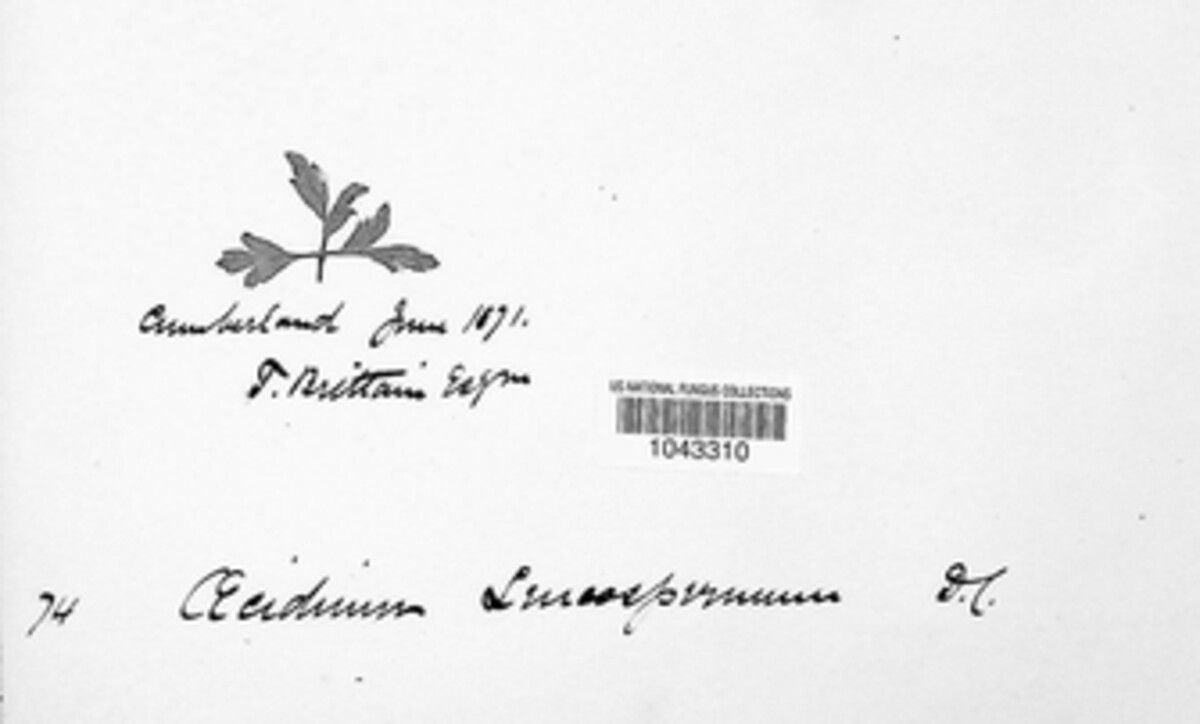 Cumberland June 1871.
T. Brittain Esqre
US NATIONAL FUNGUS COLLECTIONS
1043310
74 Œcidium Leucospermum D.C.